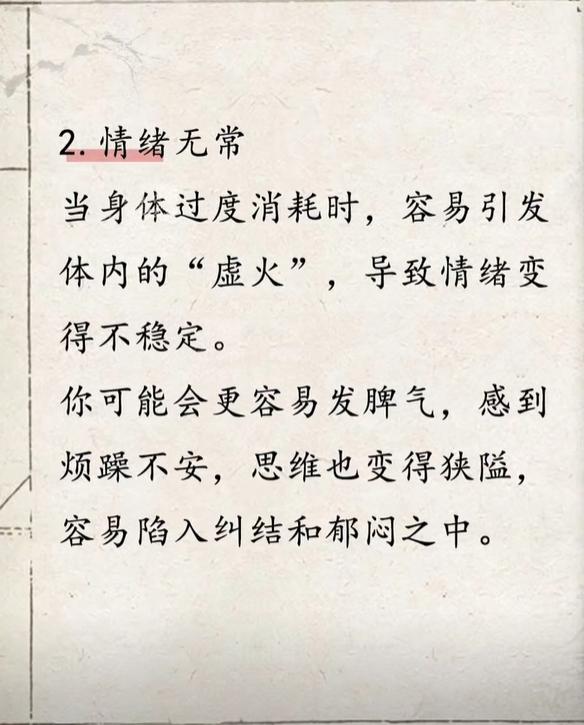 2. 情绪无常
当身体过度消耗时，容易引发
体内的“虚火”，导致情绪变
得不稳定。
你可能会更容易发脾气，感到
烦躁不安，思维也变得狭隘，
容易陷入纠结和郁闷之中。